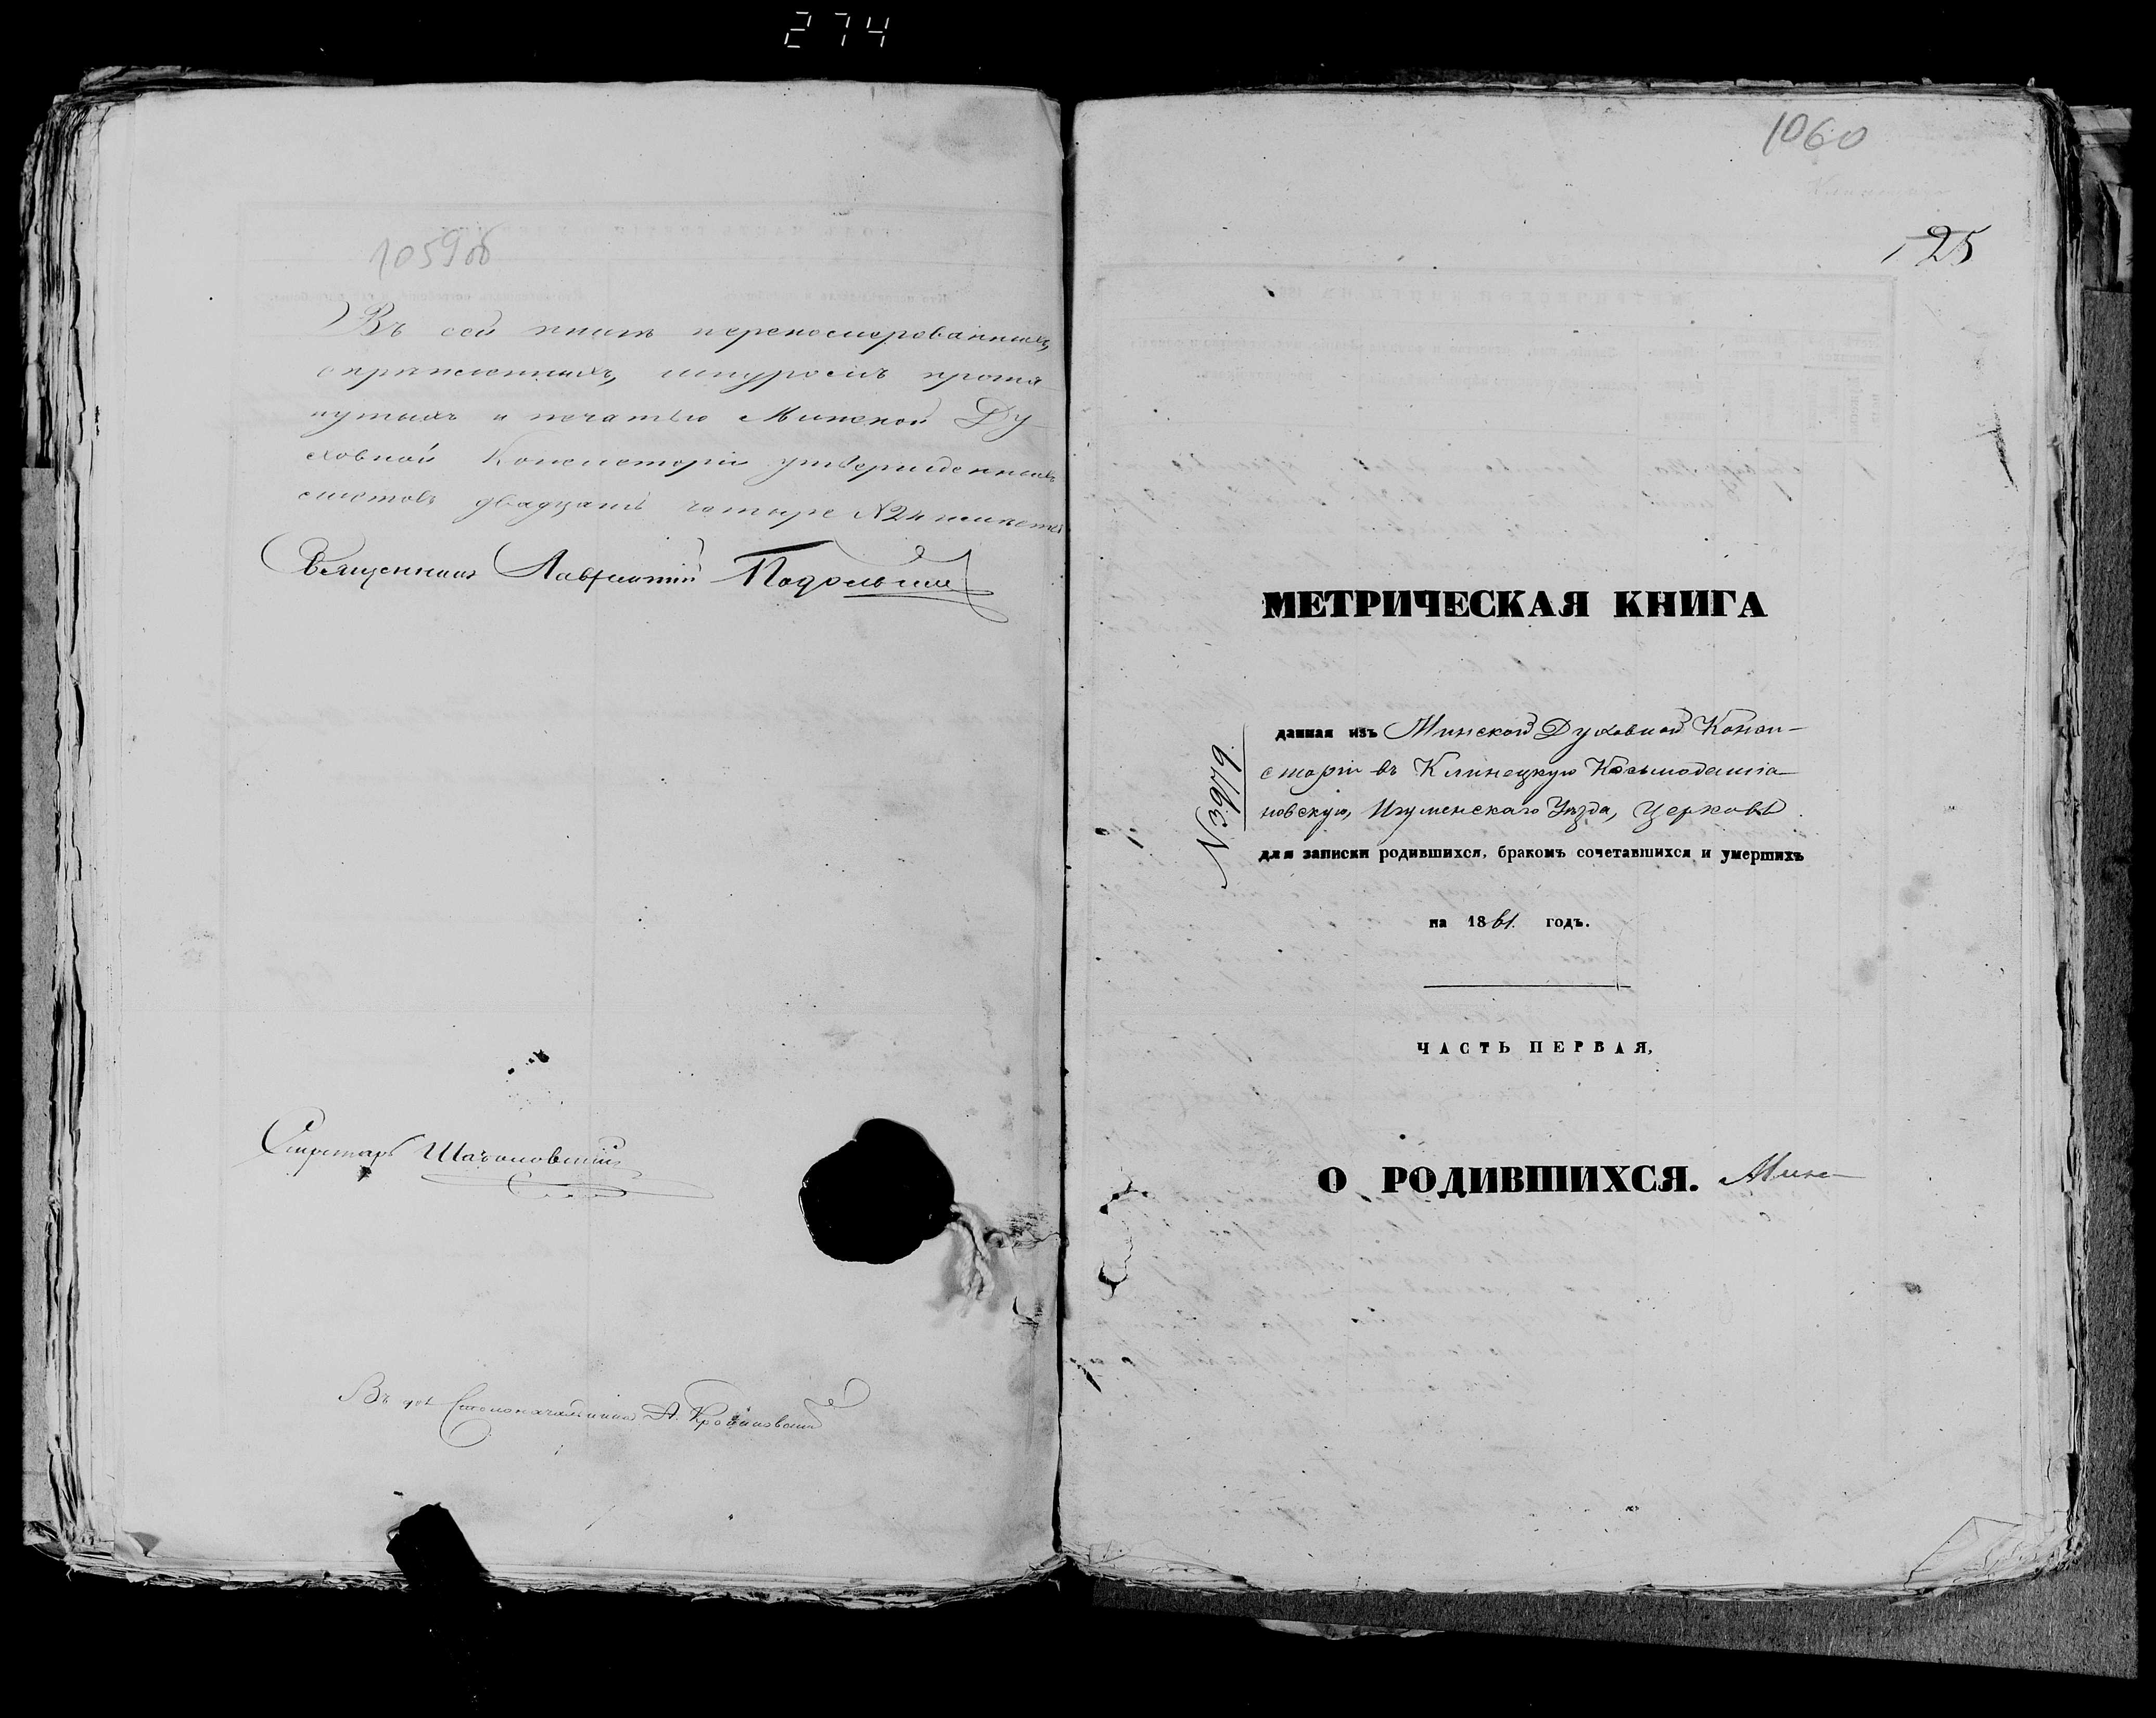 274
1059об
Въ сей книгѣ перенумерованныхъ,
скрѣпленныхъ, шнуромъ протя-
нутыхъ и печатью Минской Ду-
ховной Консисторіи утвержденныхъ
листовъ двадцать четыре №24
Священникъ Лаврентій Подольскій
Секретарь
Въ дол. Столоначальника А.
1060
25
МЕТРИЧЕСКАЯ КНИГА
№ 3979
данная изъ Минской Духовной Конси-
сторіи въ Клинецкую Косьмодаміа-
новскую, Игуменскаго Уѣзда, Церковь
для записки родившихся, бракомъ сочетавшихся и умершихъ
на 1861. годъ.
ЧАСТЬ ПЕРВАЯ,
О РОДИВШИХСЯ. Минс-